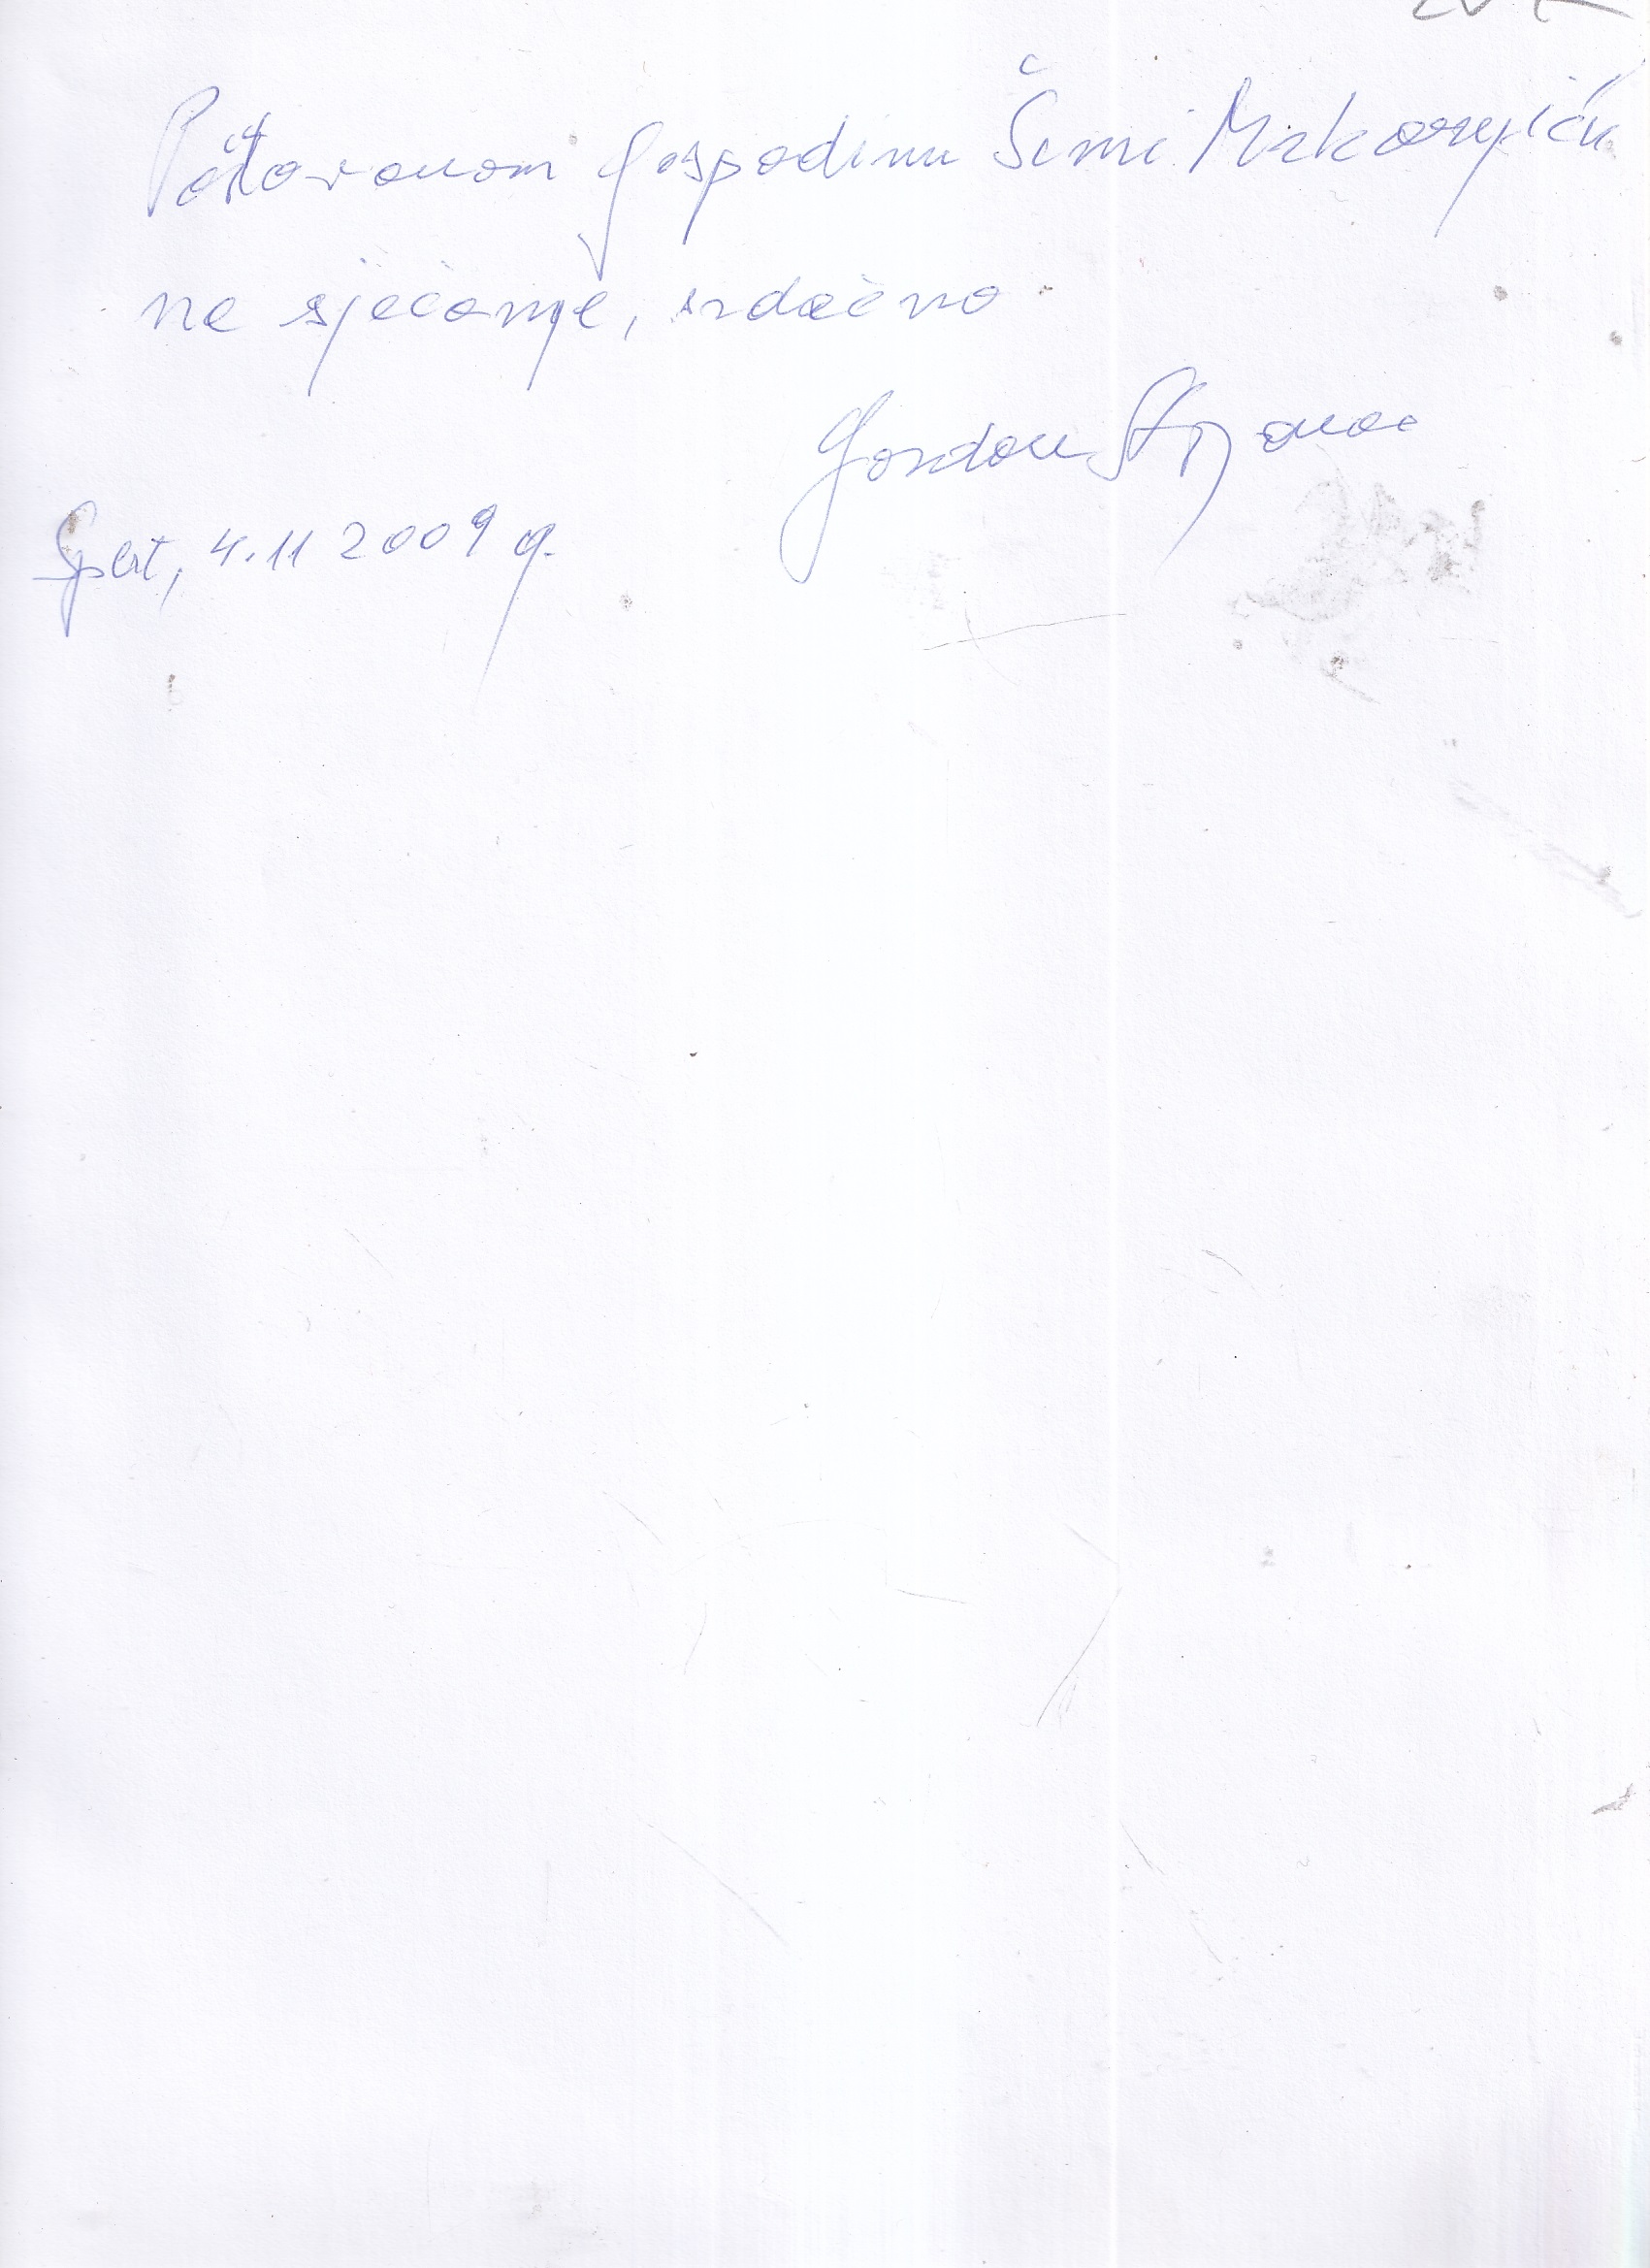 Poštovanom gospodinu Šimi
na sjećanje, srdačno
Gordan
Split, 4.11 2009 g.